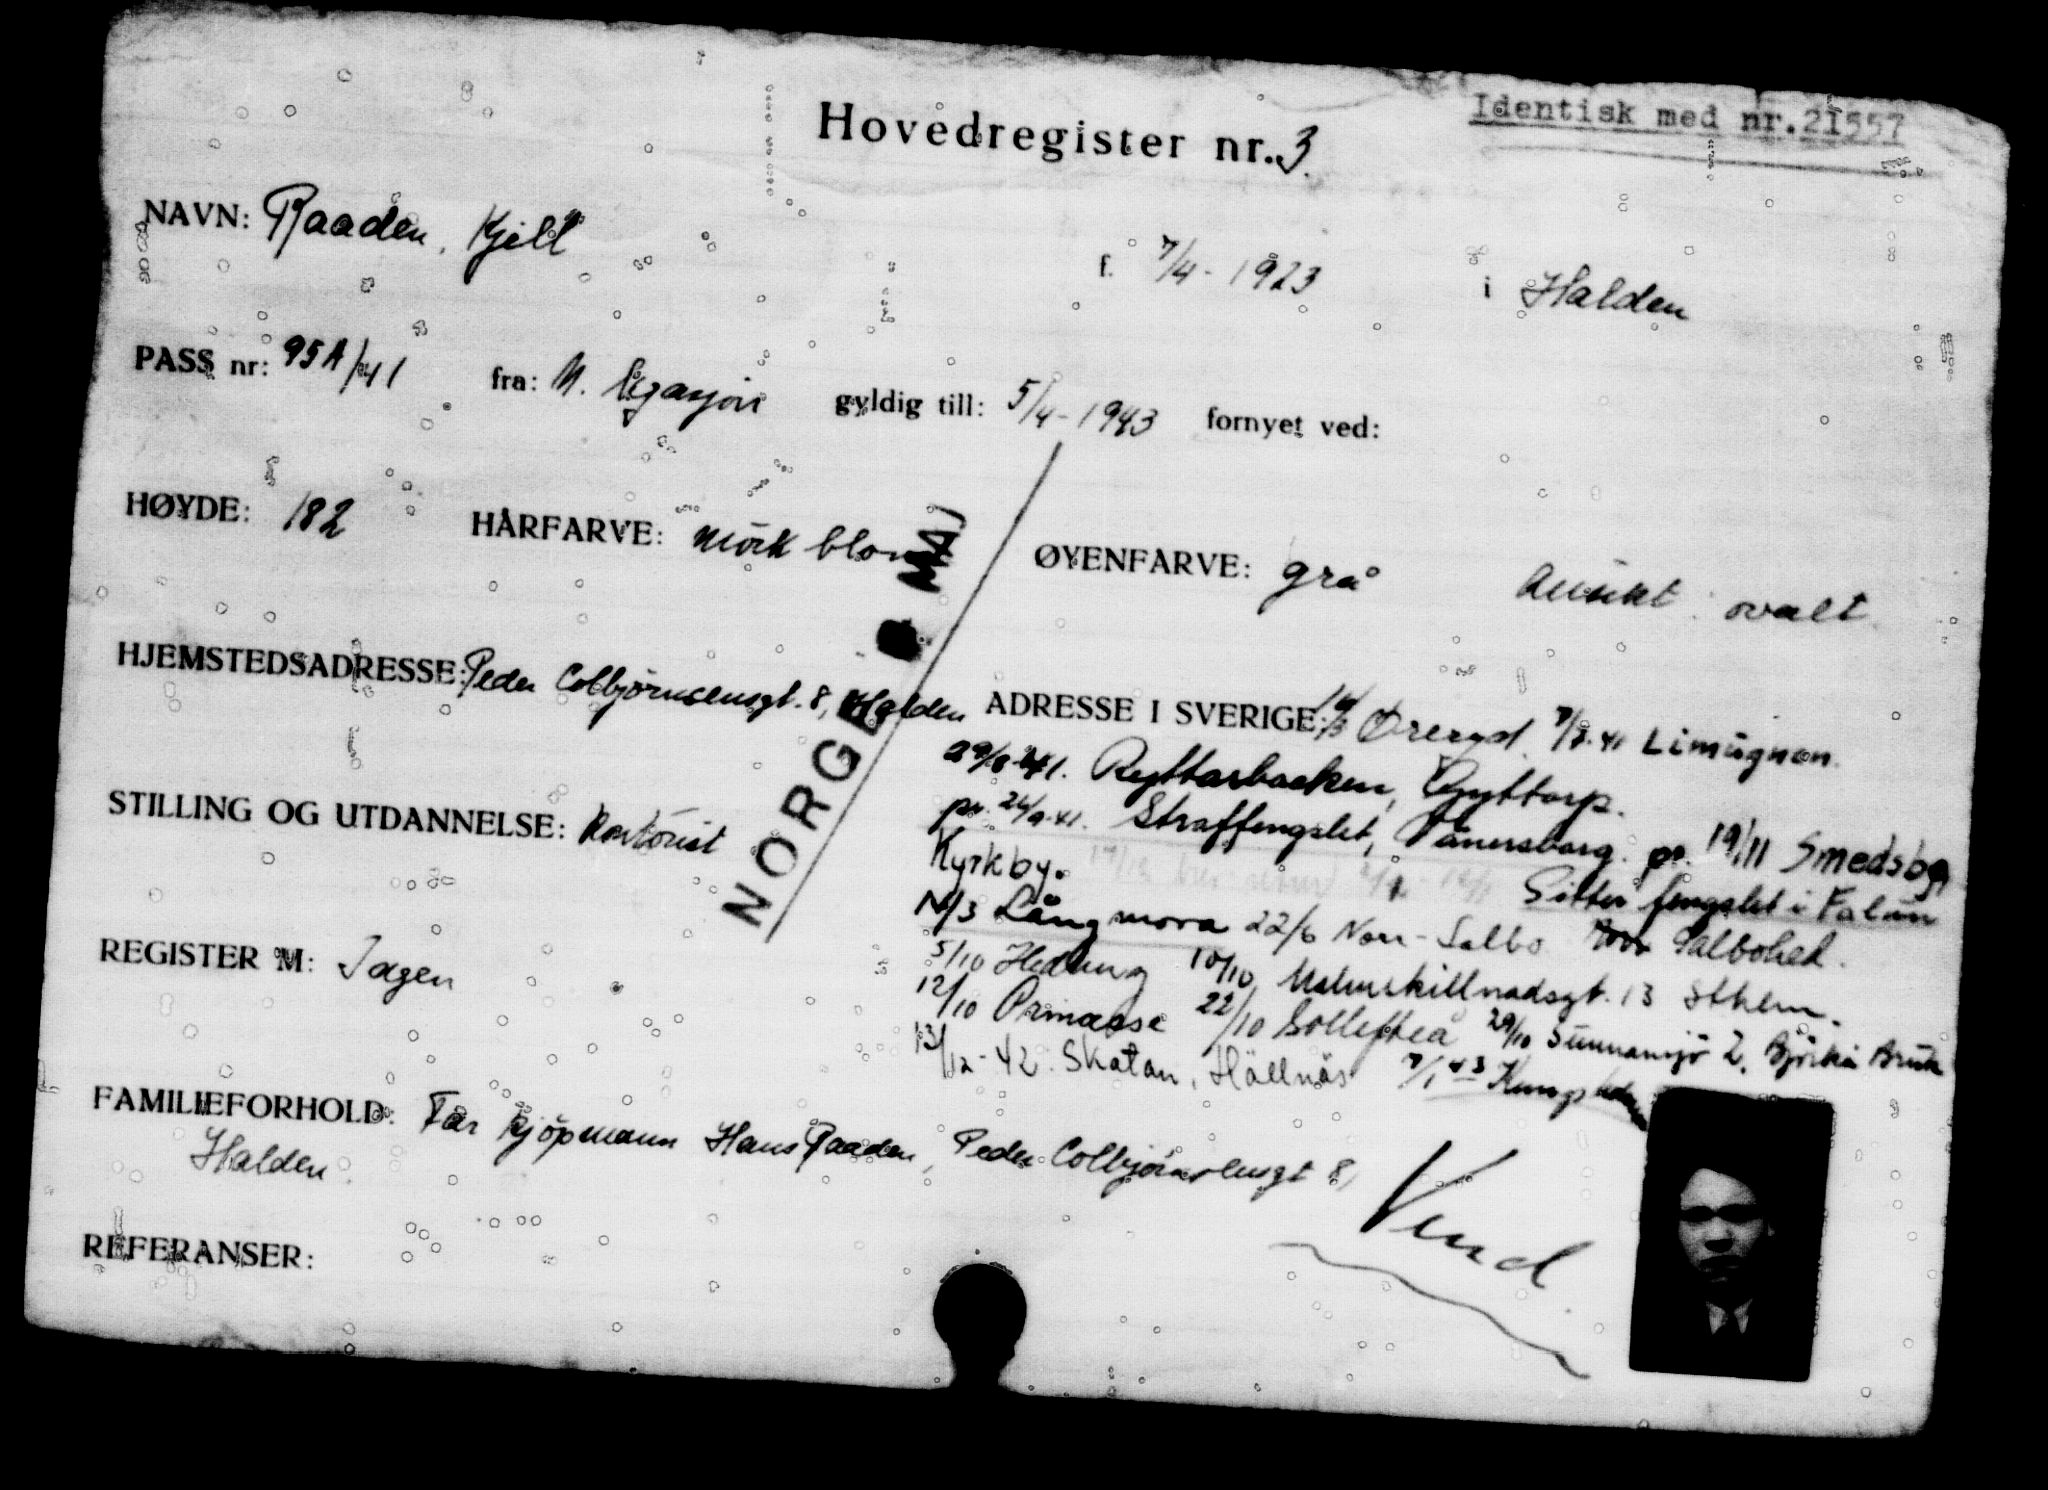 Identisk med nr.21557
Hovedregister nr. 3.
NAVN: Raaden, Kjell f. 7/4-1923 i Halden
PASS nr: 95A/41 fra: N. legasjon gyldig till: 5/4-1943 fornyet ved:
HØYDE: 182 HÅRFARVE: mörk blond ØYENFARVE: grå Ansikt: ovalt
NORGE MAJ
HJEMSTEDSADRESSE: Peder Colbjørnsensgt. 8, Halden
ADRESSE I SVERIGE: Øreryd 7/7-41 Limugnen.
29/8-41. Ryttarbacken, Gyttorp.
pr. 24/9-41. Straffengslet, Vänersborg. pr. 19/11 Smedsbo,
Kyrkby.
Sitter fengslet i Falun
/3 Långmora 22/6 Norr-Salbo Salbohed.
5/10 Hedlung 10/10 Malmskillnadsgt. 13 Sthlm.
12/10 Prinæsse 22/10 Sollefteå 29/10 Sunnansjö 2, Björka Bruk
13/12-42. Skatan, Hällnäs 7/1 43
STILLING OG UTDANNELSE: Kontorist
REGISTER M: Ingen
FAMILIEFORHOLD: Far Kjöpmann Hans Raaden, Peder Colbjørnsensgt 8,
Halden.
REFERANSER:
Vend.